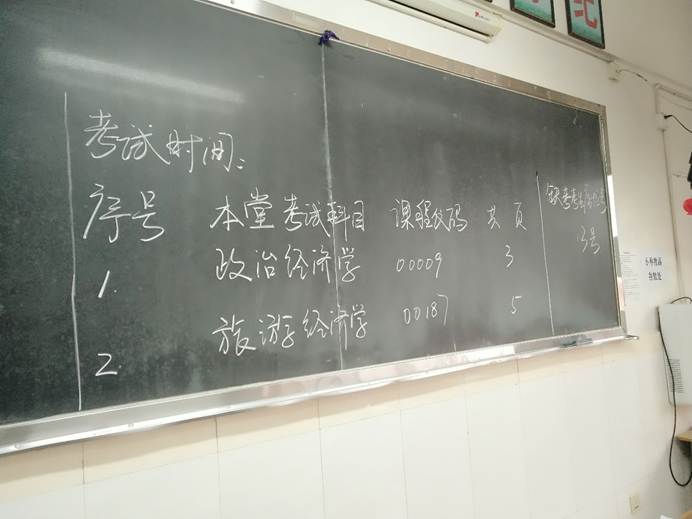 考试时间:
序号 本堂考试科目 课程代码 共 页
1. 政治经济学 00009 3
2 旅游经济学 00187 5
缺考考生座位号
3号
北